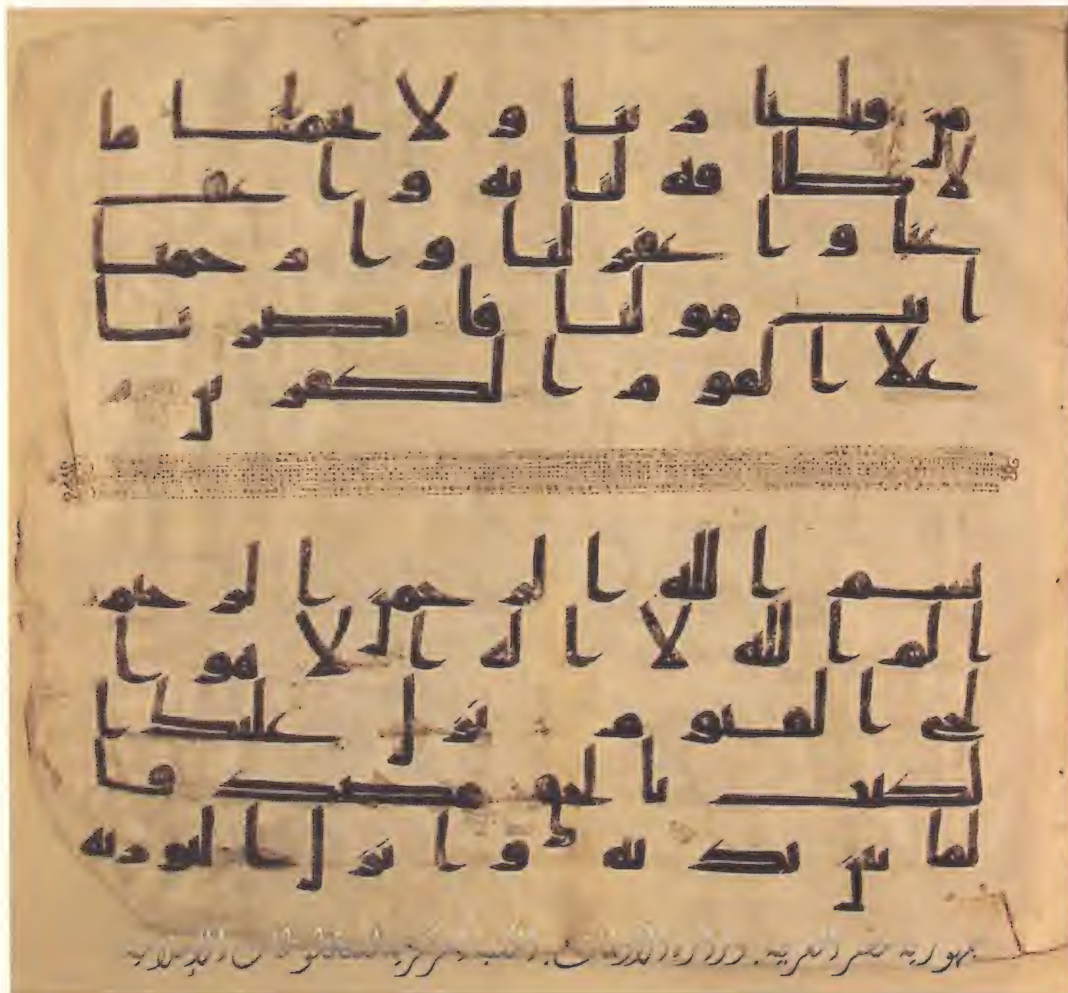 من قبلنا ربنا و لا تحملنا ما
لا طاقه لنا به و ا عف
عنا و ا غفر لنا و ا ر حمنا
ا نت مو لنا فا نصر نا
علا ا لقو م ا لكفر ين
بسم ا لله ا لر حمن ا لر حيم
ا لم ا لله لا ا له ا لا هو ا
لحي ا لقيو م نز ل عليك ا
لكتب با لحق مصدقا
لما بين يد يه و ا نز ل ا لتو ر يه
جمهورية مصر العربية . وزارة الأوقاف . المكتبة المركزية للمخطوطات الإسلامية